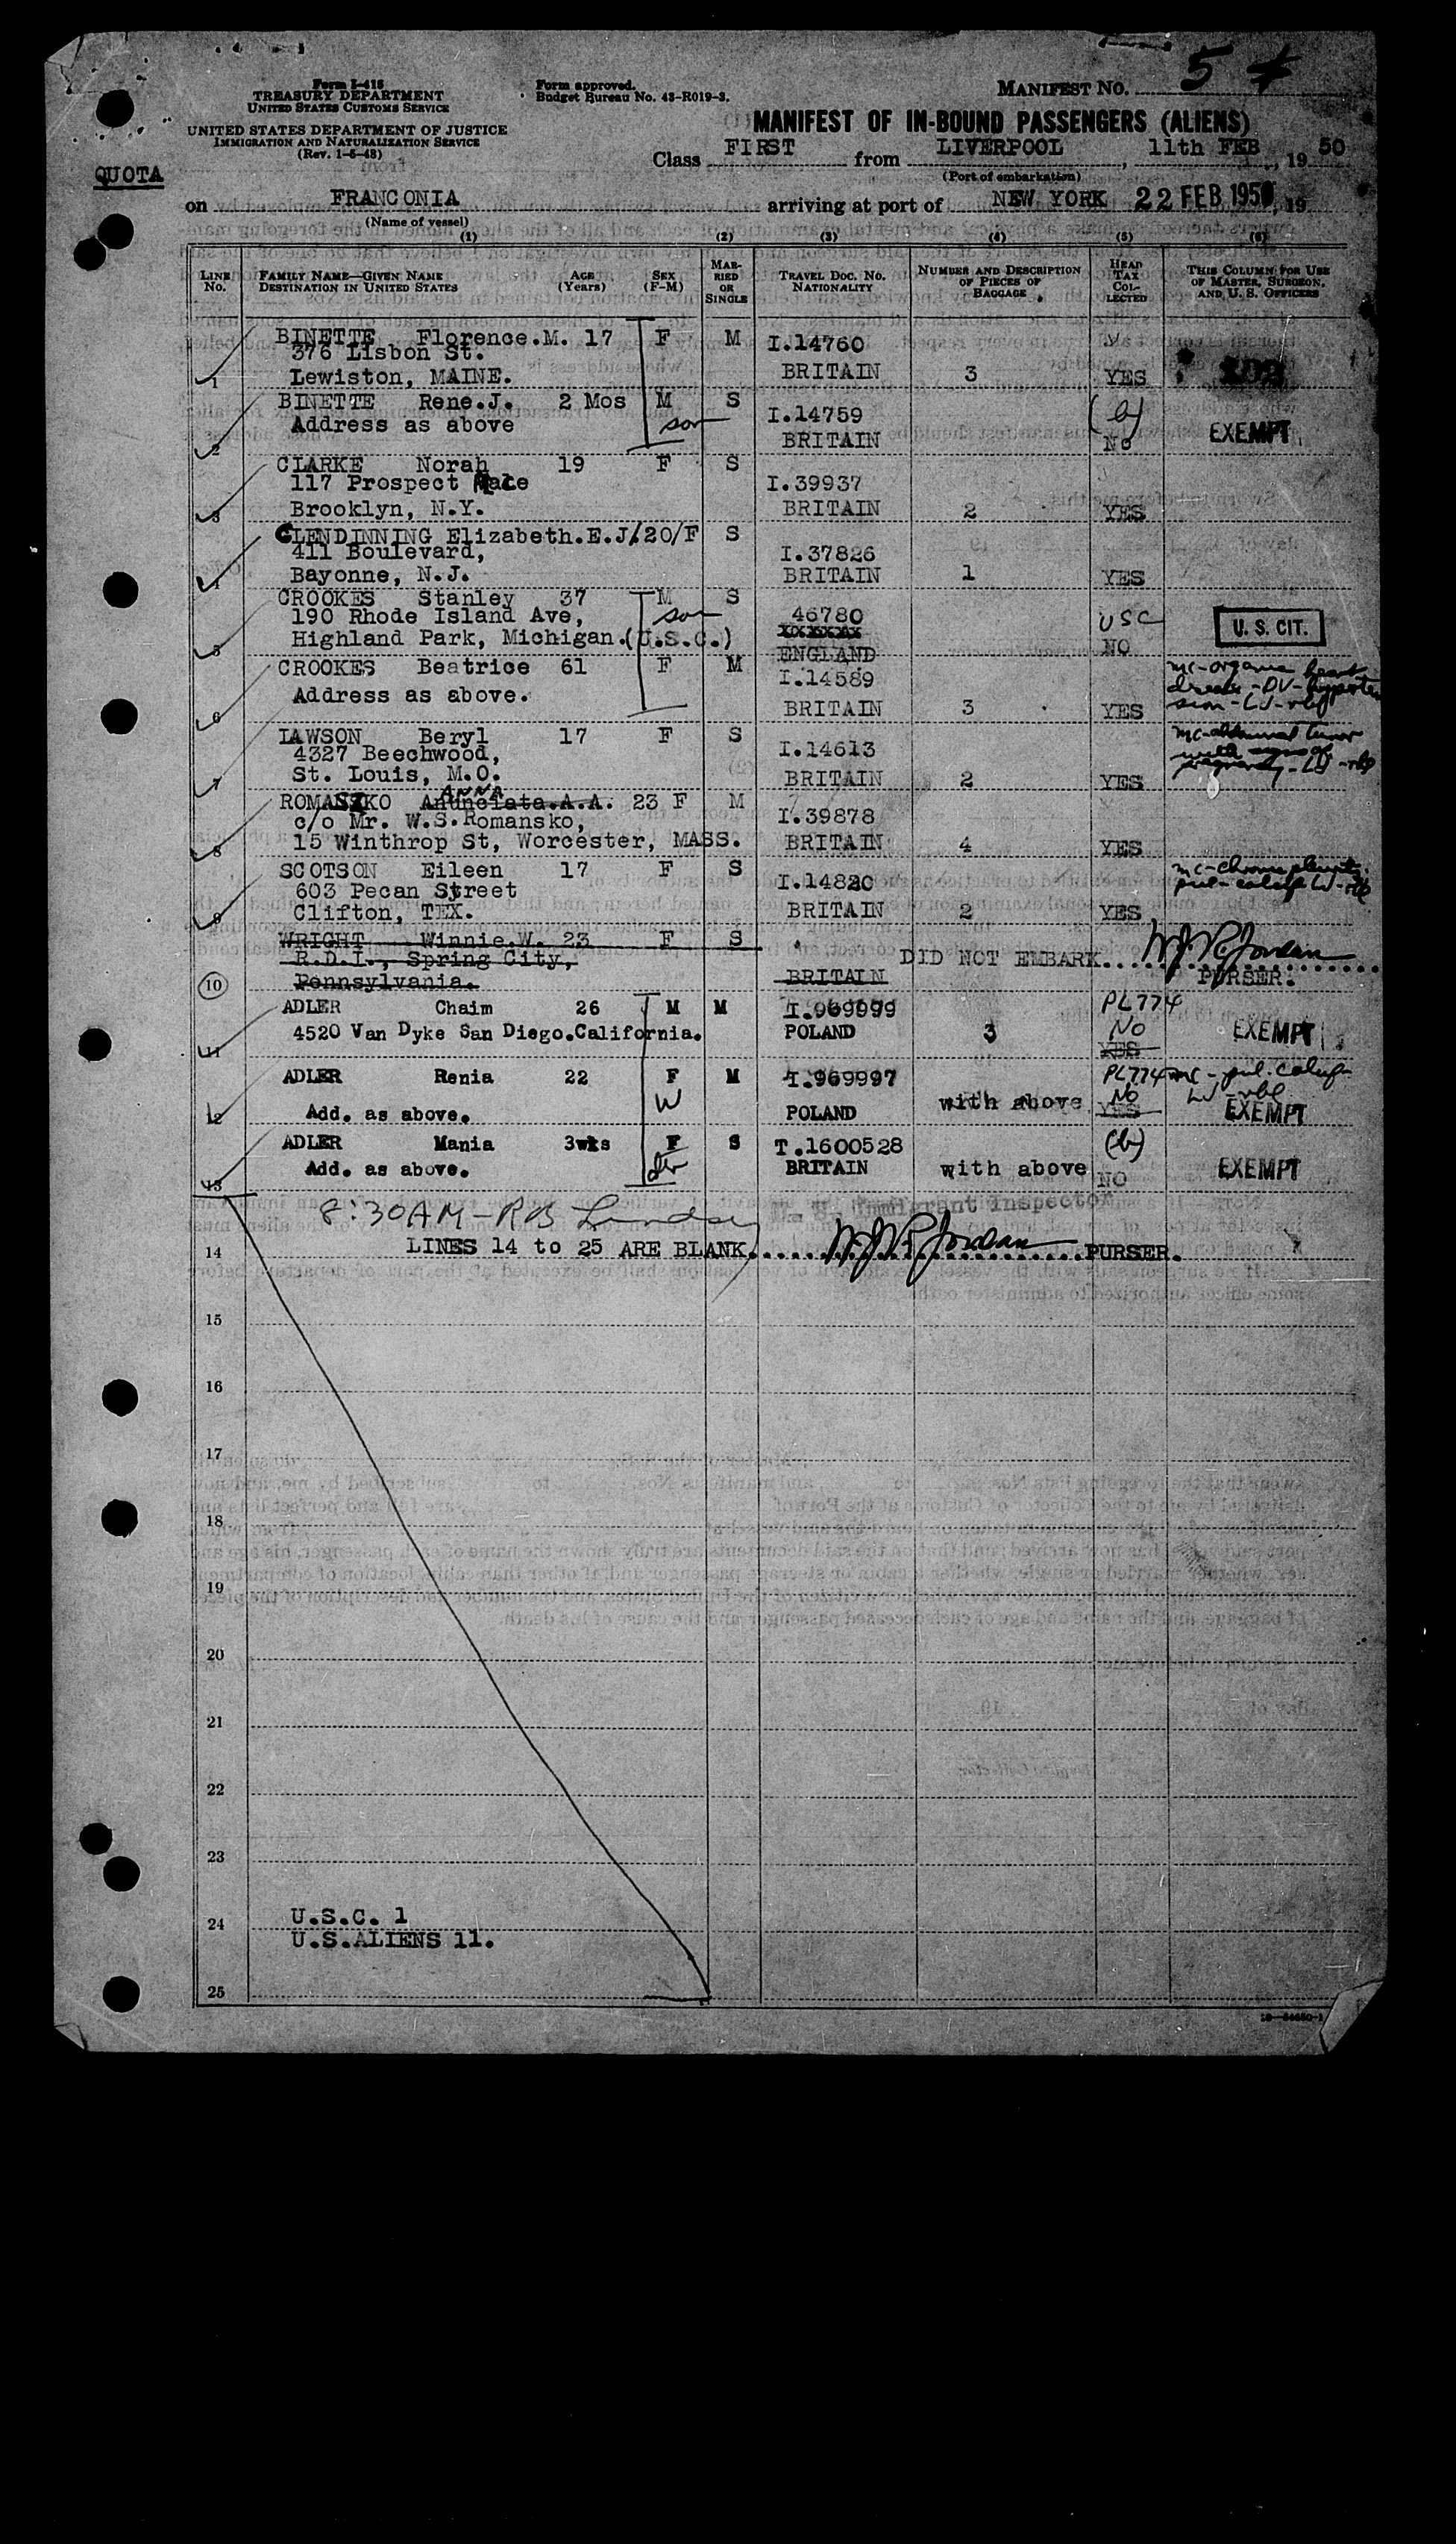 Form I-415
TREASURY DEPARTMENT
UNITED STATES CUSTOMS SERVICE
UNITED STATES DEPARTMENT OF JUSTICE
IMMIGRATION AND NATURALIZATION SERVICE
(Rev. 1-5-48)
Form approved.
Budget Bureau No. 43-R019-3.
MANIFEST NO. 5
MANIFEST OF IN-BOUND PASSENGERS (ALIENS)
QUOTA
Class FIRST from LIVERPOOL, 11th FEB, 1950
(Port of embarkation)
on FRANCONIA arriving at port of NEW YORK 22 FEB 1950, 19
(Name of vessel)
(1) (2) (3) (4) (5) (6)
LINE No. FAMILY NAME—GIVEN NAME DESTINATION IN UNITED STATES AGE (Years) SEX (F-M) MARRIED OR SINGLE TRAVEL DOC. NO. NATIONALITY NUMBER AND DESCRIPTION OF PIECES OF BAGGAGE HEAD TAX COLLECTED THIS COLUMN FOR USE OF MASTER, SURGEON, AND U. S. OFFICERS
BINETTE Florence.M. 17 F M I.14760
376 Lisbon St.
1 Lewiston, MAINE. BRITAIN 3 YES
BINETTE Rene.J. 2 Mos M S I.14759 (b)
Address as above son
2 BRITAIN NO EXEMPT
CLARKE Norah 19 F S
117 Prospect Place I.39937
3 Brooklyn, N.Y. BRITAIN 2 YES
CLENDINNING Elizabeth.E.J. 20/F S
411 Boulevard, I.37826
4 Bayonne, N.J. BRITAIN 1 YES
CROOKES Stanley 37 M S
190 Rhode Island Ave, son 46780 USC U. S. CIT.
5 Highland Park, Michigan.(U.S.C.) ENGLAND NO
CROOKES Beatrice 61 F M I.14589 mc-organic heart
disease-DV-hyperten
6 Address as above. BRITAIN 3 YES sion-LV-rbl
LAWSON Beryl 17 F S mc-abdominal tumor
4327 Beechwood, I.14613 with signs of
7 St. Louis, M.O. BRITAIN 2 YES pregnancy-LV-rbl
ANNA
ROMANSZKO Anunciata.A.A. 23 F M
c/o Mr. W.S.Romansko, I.39878
8 15 Winthrop St, Worcester, MASS. BRITAIN 4 YES
SCOTSON Eileen 17 F S mc-chronic pleuritis
603 Pecan Street I.14820
9 Clifton, TEX. BRITAIN 2 YES
WRIGHT Winnie.W. 23 F S
R.D.I., Spring City, DID NOT EMBARK.... W J R Jordan
10 Pennsylvania. BRITAIN PURSER.
ADLER Chaim 26 M M I.969999 PL774
4520 Van Dyke San Diego.California. POLAND 3 No EXEMPT
11 YES
ADLER Renia 22 F M I.969997 PL774 mc-pul. calcif.
W No LV-rbl
12 Add. as above. POLAND with above YES EXEMPT
ADLER Mania 3wks F S T.1600528 (b)
13 Add. as above. dtr BRITAIN with above NO EXEMPT
8:30AM-RB Lindsey U. S. Immigrant inspector
14 LINES 14 to 25 ARE BLANK. W J R Jordan PURSER.
15
16
17
18
19
20
21
22
23
24 U.S.C. 1
U.S.ALIENS 11.
25